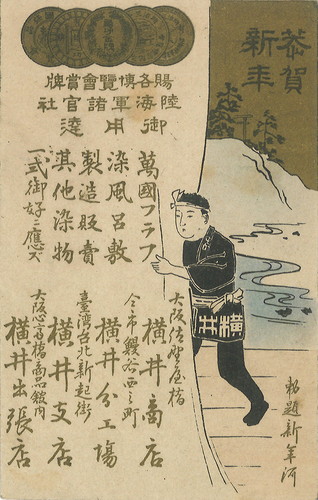 恭賀
新年
賜各博覽會賞牌
陸海軍諸官社
御用達
萬國フラフ
染風呂敷
製造販賣
其他染物
一式御好ニ應ズ
大阪佐野屋橋
横井商店
仝市鰻谷西之町
横井分工場
臺湾台北新起街
横井支店
大阪心斎橋商品舘内
横井出張店
横井
勅題新年河